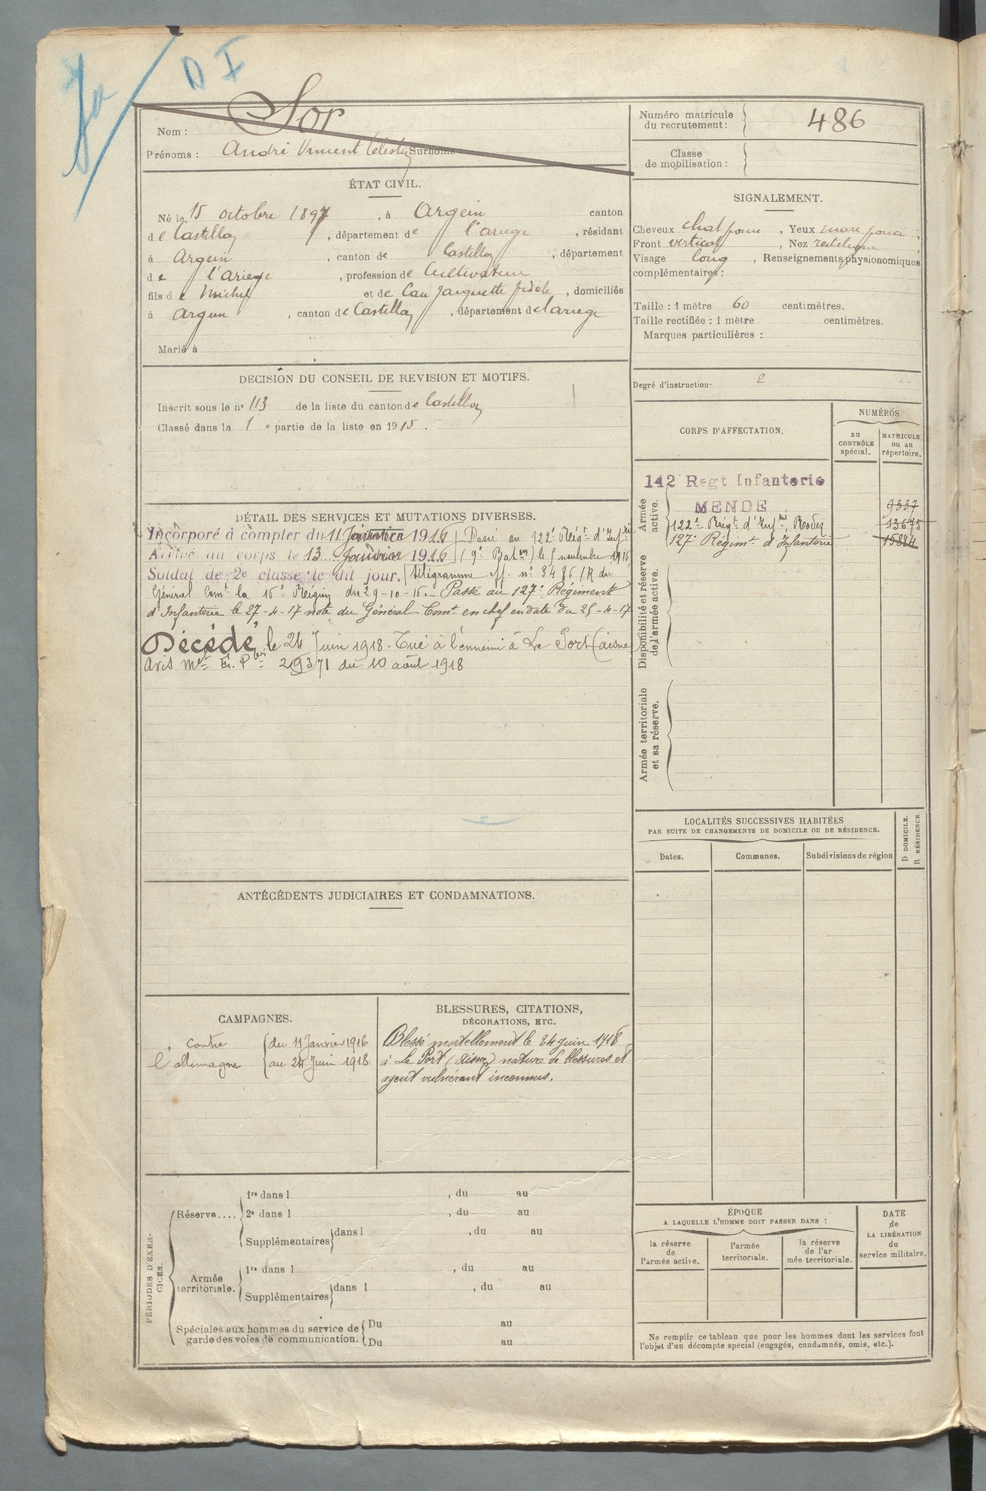 D I
Sor
Nom :
Prénoms : André Vincent Célestin Surnoms
Numéro matricule
du recrutement : 486
Classe
de mobilisation :
ÉTAT CIVIL.
Né le 15 octobre 1897, à Argein canton
de Castillon, département de l'ariege, résidant
à Argein, canton de Castillon, département
de l'Ariege, profession de Cultivateur
fils de Michel et de Cau Jacquette fidèle, domiciliés
à Argein, canton de Castillon, département de l'ariege
Marié à
SIGNALEMENT.
Cheveux chat foncé, Yeux marr foncé,
Front vertical, Nez rectiligne
Visage long, Renseignements physionomiques
complémentaires :
Taille : 1 mètre 60 centimètres.
Taille rectifiée : 1 mètre centimètres.
Marques particulières :
Degré d'instruction : 2
DÉCISION DU CONSEIL DE REVISION ET MOTIFS.
Inscrit sous le n° 113 de la liste du canton de Castillon
Classé dans la 1 e partie de la liste en 1915.
CORPS D'AFFECTATION.
NUMÉROS
au
CONTRÔLE
spécial.
MATRICULE
ou au
répertoire.
Armée
active.
142 Regt Infanterie
MENDE 9337
122e Régt d'Infrie Rodez 13675
127e Régimt d'Infanterie 15884
Disponibilité et réserve
de l'armée active.
Armée territoriale
et sa réserve.
DÉTAIL DES SERVICES ET MUTATIONS DIVERSES.
Incorporé à compter du 11 Janvier 1916 Passé au 122e Régt d'Infrie
Arrivé au corps le 13 Janvier 1916 (9e Baton) le 5 novembre 1916
Soldat de 2e classe le dit jour. télégramme off. n° 3486/R du
Général Comt la 16e Région du 29-10-16. Passé au 127e Régiment
d'Infanterie le 27-4-17 note du Général Comt en chef en date du 25-4-17
Décédé le 24 Juin 1918. Tué à l'ennemi à Le Port (aisne)
Avis 29371 du 10 août 1918
LOCALITÉS SUCCESSIVES HABITÉES
PAR SUITE DE CHANGEMENTS DE DOMICILE OU DE RÉSIDENCE.
Dates.
Communes.
Subdivisions de région
D. DOMICILE.
R. RÉSIDENCE.
ANTÉCÉDENTS JUDICIAIRES ET CONDAMNATIONS.
CAMPAGNES.
contre du 11 Janvier 1916
l'allemagne au 24 Juin 1918
BLESSURES, CITATIONS,
DÉCORATIONS, ETC.
Blessé mortellement le 24 juin 1918
à Le Port (Aisne) nature de blessures et
agent vulnérant inconnus.
PÉRIODES D'EXER-
CICES.
Réserve....
1re dans l , du au
2e dans l , du au
Supplémentaires dans l , du au
Armée
territoriale.
1re dans l , du au
Supplémentaires dans l , du au
Spéciales aux hommes du service de
garde des voies de communication.
Du au
Du au
ÉPOQUE
A LAQUELLE L'HOMME DOIT PASSER DANS :
la réserve
de
l'armée active.
l'armée
territoriale.
la réserve
de l'ar-
mée territoriale.
DATE
de
LA LIBÉRATION
du
service militaire.
Ne remplir ce tableau que pour les hommes dont les services font
l'objet d'un décompte spécial (engagés, condamnés, omis, etc.).